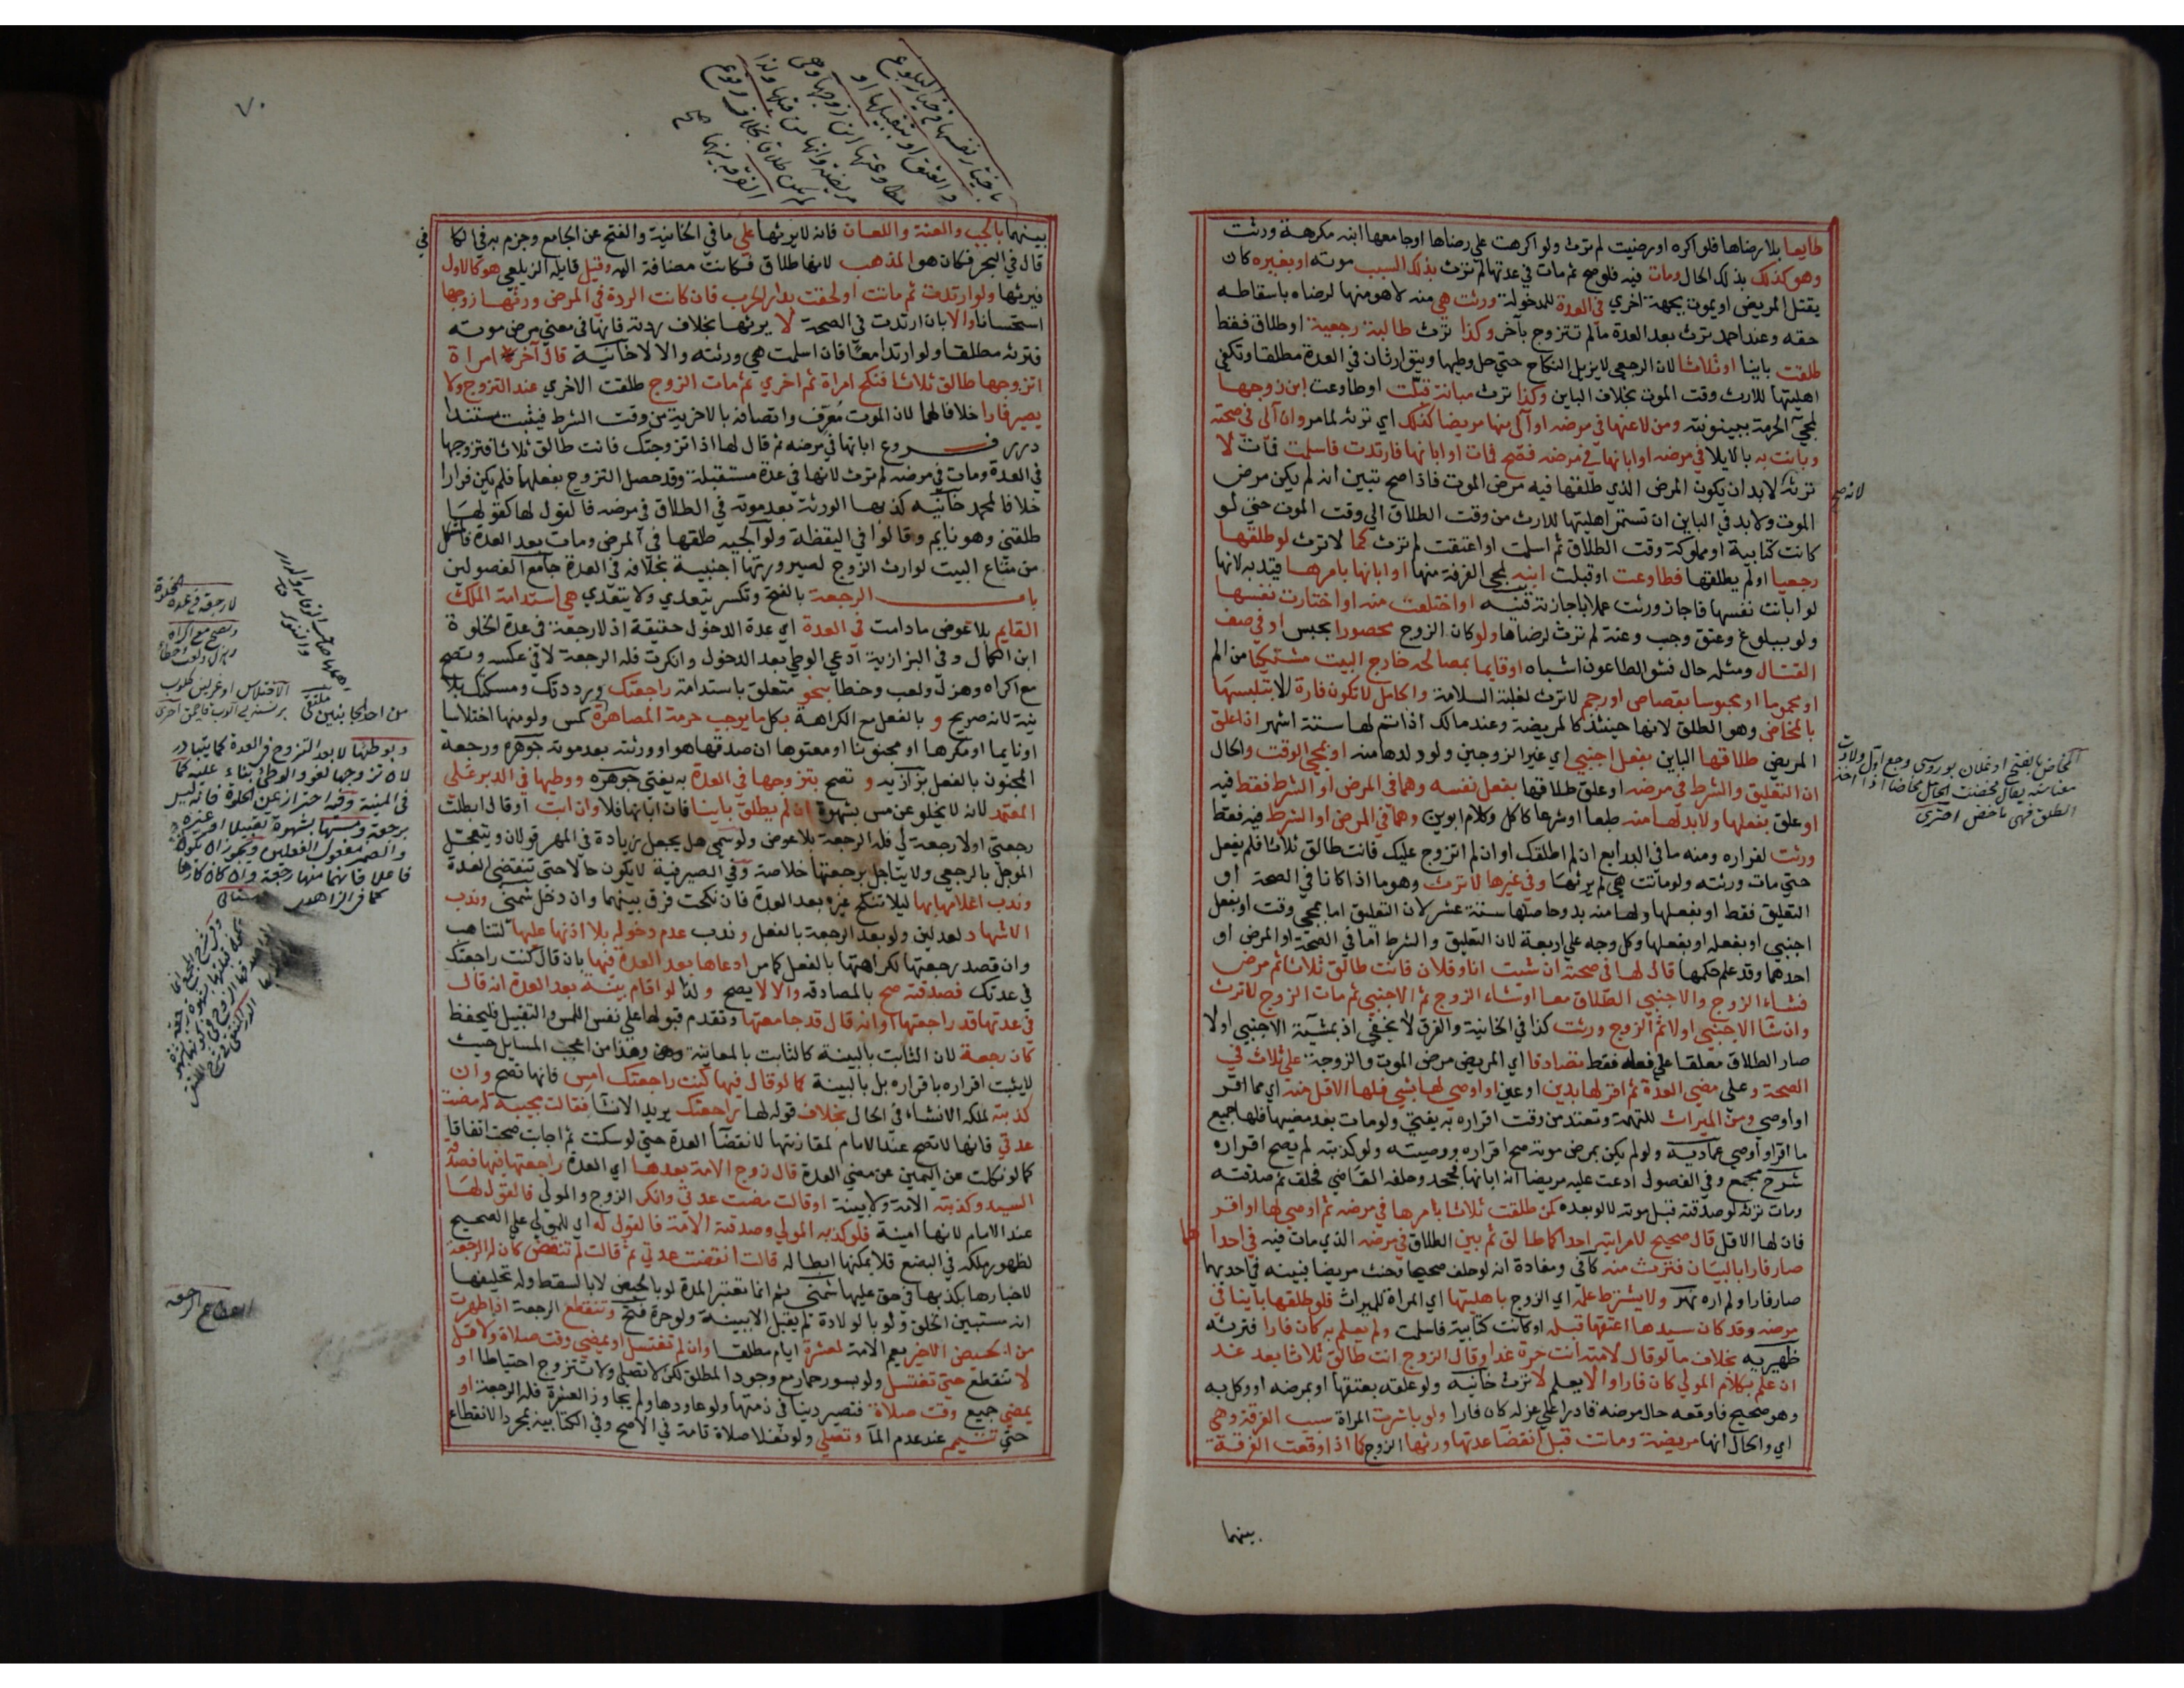 طايعا بلا رضاها فلو اكره او رضيت لم ترث ولو اكرهت على رضاها او جامعها ابنه مكرهة ورثت
وهو كذلك بذلك الحال ومات فيه فلو صح ثم مات في عدتها لم ترث بذلك السبب موته او بغيره كان
يقتل المريض او يموت بجهة اخرى في العدة للمدخولة ورثت هي منه لا هو منها لرضاه باسقاطه
حقه وعند احمد ترث بعد العدة ما لم تتزوج بآخر وكذا ترث طالبة رجعية او طلاق فقط
طلقت باينا او ثلاثا لان الرجعي لا يزيل النكاح حتى حل وطيها ويتوارثان في العدة مطلقا وتكفي
اهليتها للارث وقت الموت بخلاف الباين وكذا ترث مبانة قبلت او طاوعت ابن زوجها
لمجئ الحرمة ببينونته ومن لاعنها في مرضه او آلى منها مريضا كذلك اي ترثه لما مر وان آلى في صحته
وبانت به بالايلا في مرضه او ابانها في مرضه فصح فمات او ابانها فارتدت فاسلمت فمات لا
ترثه لا بد ان يكون المرض الذي طلقها فيه مرض الموت فاذا صح تبين انه لم يكن مرض
الموت ولا بد في الباين ان تستمر اهليتها للارث من وقت الطلاق الى وقت الموت حتى لو
كانت كتابية او مملوكة وقت الطلاق ثم اسلمت او اعتقت لم ترث كما لا ترث لو طلقها
رجعيا او لم يطلقها فطاوعت او قبلت ابنه لمجئ الفرقة منها او ابانها بامرها قيد به لانها
لو ابانت نفسها فاجاز ورثت عملا باجازته قنيه او اختلعت منه او اختارت نفسها
ولو ببلوغ وعتق وجب وعنة لم ترث لرضاها ولو كان الزوج محصورا بحبس او في صف
القتال ومثله حال فشو الطاعون اشباه او قايما بمصالحه خارج البيت مشتكيا من الم
او محموما او محبوسا بقصاص او رجم لا ترث لغلبة السلامة والحامل لا تكون فارة الا بتلبسها
بالمخاض وهو الطلق لانها حينئذ كالمريضة وعند مالك اذا تم لها ستة اشهر اذا علق
المريض طلاقها الباين بفعل اجنبي اي غير الزوجين ولو ولدها منه او بمجئ الوقت والحال
ان التعليق والشرط في مرضه او علق طلاقها بفعل نفسه وهما في المرض او الشرط فقط فيه
او علق بفعلها ولا بد لها منه طبعا او شرعا كاكل وكلام ابوين وهما في المرض او الشرط فيه فقط
ورثت لفراره ومنه ما في البدايع ان لم اطلقك او ان لم اتزوج عليك فانت طالق ثلاثا فلم يفعل
حتى مات ورثته ولو ماتت هي لم يرثها وفي غيرها لا ترث وهو ما اذا كانا في الصحة او
التعليق فقط او بفعلها ولها منه بد وحاصلها ستة عشر لان التعليق اما بمجئ وقت او بفعل
اجنبي او بفعله او بفعلها وكل وجه على اربعة لان التعليق والشرط اما في الصحة او المرض او
احدهما وقد علم حكمها قال لها في صحته ان شئت انا وفلان فانت طالق ثلاثا ثم مرض
فشاء الزوج والاجنبي الطلاق معا او شاء الزوج ثم الاجنبي ثم مات الزوج لا ترث
وان شا الاجنبي اولا ثم الزوج ورثت كذا في الخانية والفرق لا يخفى اذ بمشيئة الاجنبي اولا
صار الطلاق معلقا على فعله فقط تصادقا اي المريض مرض الموت والزوجة على ثلاث في
الصحة وعلى مضي العدة ثم اقر لها بدين او عين او اوصى لها بشئ فلها الاقل منه اي مما اقر
او اوصى ومن الميراث للتهمة وتعتد من وقت اقراره به يفتى ولو مات بعد مضيها فلها جميع
ما اقر او اوصى عمادية ولو لم يكن بمرض موته صح اقراره ووصيته ولو كذبته لم يصح اقراره
شرح مجمع وفي الفصول ادعت عليه مريضا انه ابانها فجحد وحلفه القاضي فحلف ثم صدقته
ومات ترثه لو صدقته قبل موته لا لو بعده كمن طلقت ثلاثا بامرها في مرضه ثم اوصى لها او اقر
فان لها الاقل قال صحيح لامراتيه احداكما طالق ثم بين الطلاق في مرضه الذي مات فيه في احداهما
صار فارا بالبيان فترث منه كافي ومفاده انه لو حلف صحيحا وحنث مريضا فبينه في احديهما
صار فارا ولم اره نهر ولا يشترط علمه اي الزوج باهليتها اي المراة للميراث فلو طلقها باينا في
مرضه وقد كان سيدها اعتقها قبله او كانت كتابية فاسلمت ولم يعلم به كان فارا فترثه
ظهيريه بخلاف ما لو قال لامته انت حرة غدا وقال الزوج انت طالق ثلاثا بعد غد
ان علم بكلام المولى كان فارا والا يعلم لا ترث خانيه ولو علقه بعتقها او بمرضه او وكل به
وهو صحيح فاوقعه حال مرضه قادرا على عزله كان فارا ولو باشرت المراة سبب الفرقة وهي
اي والحال انها مريضة وماتت قبل انقضا عدتها ورثها الزوج كما اذا وقعت الفرقة
بينهما
لانه صح
المخاض بالفتح اوغلان بوروسي وجع آول ولادت
معناسنه يقال مخضت الحامل مخاضا اذا اخذ
الطلق فهي ماخض اختري
٧٠
باختيار نفسها في خيار البلوغ
والعتق او بتقبيلها او
مطاوعتها ابن زوجها وهي
مريضة
الفرقة بينهما صح
بينهما بالجب والعنة واللعان فانه لا يرثها على ما في الخانية والفتح عن الجامع وجزم به في الكافي
قال في البحر فكان هو المذهب لانها طلاق فكانت مضافة اليه وقيل قايله الزيلعي هو كالاول
فيرثها ولو ارتدت ثم ماتت او لحقت بدار الحرب فان كانت الردة في المرض ورثها زوجها
استحسانا والا بان ارتدت في الصحة لا يرثها بخلاف ردته فانها في معنى مرض موته
فترثه مطلقا ولو ارتدا معا فان اسلمت هي ورثته والا لا خانية قال آخر امراة
اتزوجها طالق ثلاثا فنكح امراة ثم اخرى ثم مات الزوج طلقت الاخرى عند التزوج ولا
يصير فارا خلافا لهما لان الموت معرف واتصافه بالاخرية من وقت الشرط فيثبت مستندا
درر فروع ابانها في مرضه ثم قال لها اذا تزوجتك فانت طالق ثلاثا فتزوجها
في العدة ومات في مرضه لم ترث لانها في عدة مستقبلة وقد حصل التزوج بفعلها فلم يكن فرارا
خلافا لمحمد خانيه كذبها الورثة بعد موته في الطلاق في مرضه فالقول لها كقولها
طلقني وهو نايم وقالوا في اليقظة ولوالجيه طلقها في المرض ومات بعد العدة فالمشكل
من متاع البيت لوارث الزوج لصيرورتها اجنبية بخلافه في العدة جامع الفصولين
باب الرجعة بالفتح وتكسر يتعدى ولا يتعدى هي استدامة الملك
القايم بلا عوض ما دامت في العدة اي عدة الدخول حقيقة اذ لا رجعة في عدة الخلوة
ابن الكمال وفي البزازية ادعى الوطي بعد الدخول وانكرت فله الرجعة لا في عكسه وتصح
مع اكراه وهزل ولعب وخطا بنحو متعلق باستدامة راجعتك ورددتك ومسكتك بلا
نية لانه صريح و بالفعل مع الكراهة بكل ما يوجب حرمة المصاهرة كمس ولو منها اختلاسا
او نايما او مكرها او مجنونا او معتوها ان صدقها هو او ورثته بعد موته جوهره ورجعة
المجنون بالفعل بزازيه و تصح بتزوجها في العدة به يفتى جوهره ووطيها في الدبر على
المعتمد لانه لا يخلو عن مس بشهوة ان لم يطلق باينا فان ابانها فلا وان ابت او قال ابطلت
رجعتي او لا رجعة لي فله الرجعة بلا عوض ولو سمى هل يجعل زيادة في المهر قولان ويتعجل
الموجل بالرجعي ولا يتاجل برجعتها خلاصة وفي الصيرفية لا يكون حالا حتى تنقضي العدة
وندب اعلامها بها ليلا تنكح غيره بعد العدة فان نكحت فرق بينهما وان دخل شمني وندب
الاشهاد لعدلين ولو بعد الرجعة بالفعل وندب عدم دخوله بلا اذنها عليها لتتاهب
وان قصد رجعتها لكراهتها بالفعل كما مر ادعاها بعد العدة فيها بان قال كنت راجعتك
في عدتك فصدقته صح بالمصادقة والا لا يصح ولذا لو اقام بينة بعد العدة انه قال
في عدتها قد راجعتها او انه قال قد جامعتها وتقدم قبولها على نفس اللمس والتقبيل فليحفظ
كان رجعة لان الثابت بالبينة كالثابت بالمعاينة وهذا من اعجب المسايل حيث
لا يثبت اقراره باقراره بل بالبينة كما لو قال فيها كنت راجعتك امس فانها تصح وان
كذبته لملكه الانشاء في الحال بخلاف قوله لها راجعتك يريد الانشا فقالت مجيبة له مضت
عدتي فانها لا تصح عند الامام لمقارنتها لانقضا العدة حتى لو سكتت ثم اجابت صحت اتفاقا
كما لو نكلت عن اليمين عن مضي العدة قال زوج الامة بعدها اي العدة راجعتها فيها فصدقه
السيد وكذبته الامة ولا بينة او قالت مضت عدتي وانكر الزوج والمولى فالقول لها
عند الامام لانها امينة فلو كذبه المولى وصدقته الامة فالقول له اي للمولى على الصحيح
لظهور ملكه في البضع فلا يمكنها ابطاله قالت انقضت عدتي ثم قالت لم تنقض كان له الرجعة
لاخبارها بكذبها في حق عليها شمني ثم انما تعتبر المدة لو بالحيض لا بالسقط وله تحليفها
انه مستبين الخلق ولو بالولادة لم يقبل الا ببينة ولو حرة فتح وتنقطع الرجعة اذا طهرت
من الحيض الاخير يعم الامة لعشرة ايام مطلقا وان لم تغتسل او يمضي وقت صلاة ولاقل
لا تنقطع حتى تغتسل ولو بسور حمار مع وجود المطلق لكن لا تصلي ولا تتزوج احتياطا او
يمضي جميع وقت صلاة فتصير دينا في ذمتها ولو عاودها ولم يجاوز العشرة فله الرجعة او
حتى تتيمم عند عدم الما وتصلي ولو نفلا صلاة تامة في الاصح وفي الكتابية بمجرد الانقطاع
لا رجعة في عدة الخلوة
وتصح مع اكراه
وهزل ولعب وخطا
من احد الجانبين ملتقى
وبوطئها لا بعد التزوج في العدة كما يتبادر
لان تزوجها لغو والوطئ بناء عليه كما
في المنية وفيه احتراز عن الخلوة فانه ليس
برجعة ومسها بشهوة تقبيلا او غيره
والضمير مفعول الفعلين ويجوز ان يكون
فاعلا فانهما منها رجعة وان كان كارها
كما في الزاهدي قهستاني
انقطاع الرجعة